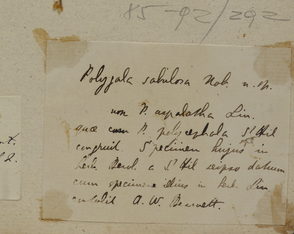 85-92/292
Polygala sabulosa Nob. n. sp.
non P. aspalatha Lin.
quae cum P. polycephala St Hil
congruit. Specimen hujus in
herb. Berol. a St Hil ipso datum
cum specimine illius in herb. Lin
contulit A. W. Bennett.